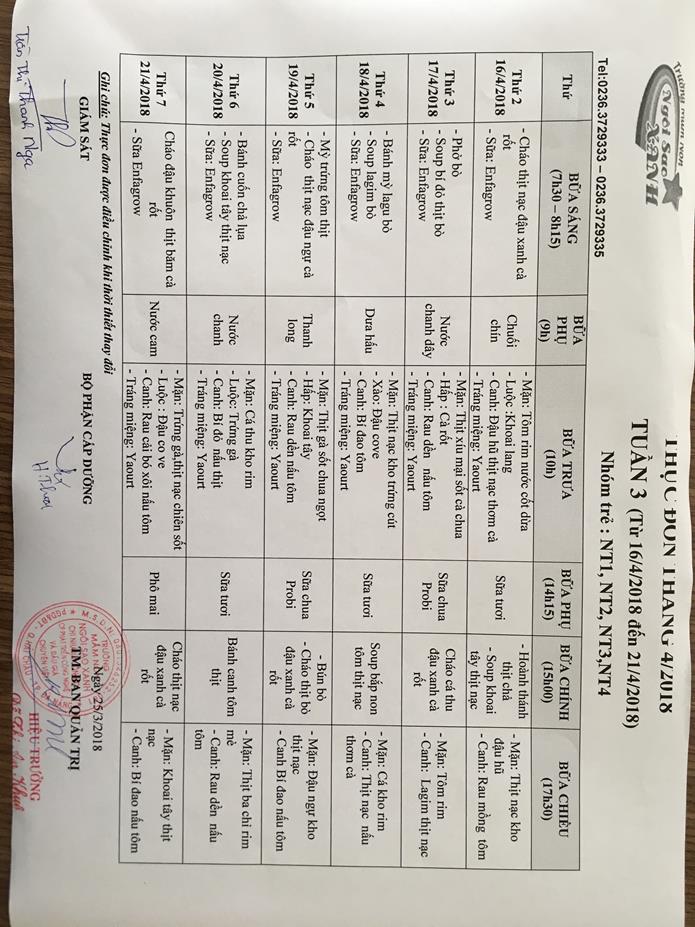 Trường Mầm Non
Ngôi Sao
XANH
Tel:0236.3729333 – 0236.3729335
THỰC ĐƠN THÁNG 4/2018
TUẦN 3 (Từ 16/4/2018 đến 21/4/2018)
Nhóm trẻ : NT1, NT2, NT3,NT4
Thứ
BỮA SÁNG
(7h30 – 8h15)
BỮA
PHỤ
(9h)
BỮA TRƯA
(10h)
BỮA PHỤ
(14h15)
BỮA CHÍNH
(15h00)
BỮA CHIỀU
(17h30)
Thứ 2
16/4/2018
- Cháo thịt nạc đậu xanh cà
rốt
- Sữa: Enfagrow
Chuối
chín
- Mặn: Tôm rim nước cốt dừa
- Luộc :Khoai lang
- Canh: Đậu hũ thịt nạc thơm cà
- Tráng miệng: Yaourt
Sữa tươi
- Hoành thánh
thịt chả
- Soup khoai
tây thịt nạc
- Mặn: Thịt nạc kho
đậu hũ
- Canh: Rau mồng tôm
Thứ 3
17/4/2018
- Phở bò
- Soup bí đỏ thịt bò
- Sữa: Enfagrow
Nước
chanh dây
- Mặn: Thịt xíu mại sốt cà chua
- Hấp : Cà rốt
- Canh: Rau dền nấu tôm
- Tráng miệng: Yaourt
Sữa chua
Probi
Cháo cá thu
đậu xanh cà
rốt
- Mặn: Tôm rim
- Canh: Lagim thịt nạc
Thứ 4
18/4/2018
- Bánh mỳ lagu bò
- Soup lagim bò
- Sữa: Enfagrow
Dưa hấu
- Mặn: Thịt nạc kho trứng cút
- Xào: Đậu cove
- Canh: Bí đao tôm
- Tráng miệng: Yaourt
Sữa tươi
Soup bắp non
tôm thịt nạc
- Mặn: Cá kho rim
- Canh: Thịt nạc nấu
thơm cà
Thứ 5
19/4/2018
- Mỳ trứng tôm thịt
- Cháo thịt nạc đậu ngự cà
rốt
- Sữa: Enfagrow
Thanh
long
- Mặn: Thịt gà sốt chua ngọt
- Hấp: Khoai tây
- Canh: Rau dền nấu tôm
- Tráng miệng: Yaourt
Sữa chua
Probi
- Bún bò
- Cháo thịt bò
đậu xanh cà
rốt
- Mặn: Đậu ngự kho
thịt nạc
- Canh Bí đao nấu tôm
Thứ 6
20/4/2018
- Bánh cuốn chả lụa
- Soup khoai tây thịt nạc
- Sữa: Enfagrow
Nước
chanh
- Mặn: Cá thu kho rim
- Luộc: Trứng gà
- Canh: Bí đỏ nấu thịt
- Tráng miệng: Yaourt
Sữa tươi
Bánh canh tôm
thịt
- Mặn: Thịt ba chỉ rim
mè
- Canh: Rau dền nấu
tôm
Thứ 7
21/4/2018
Cháo đậu khuôn thịt băm cà
rốt
- Sữa Enfagrow
Nước cam
- Mặn: Trứng gà,thịt nạc chiên sốt
- Luộc : Đậu co ve
- Canh: Rau cải bó xôi nấu tôm
- Tráng miệng: Yaourt
Phô mai
Cháo thịt nạc
đậu xanh cà
rốt
- Mặn: Khoai tây thịt
nạc
- Canh: Bí đao nấu tôm
Ghi chú: Thực đơn được điều chỉnh khi thời thiết thay đổi
Ngày 25/3/2018
GIÁM SÁT
BỘ PHẬN CẤP DƯỠNG
TM.BAN QUẢN TRỊ
Trần Thị Thanh Nga
H.Thoa
TRƯỜNG
MẦM NON
NGÔI SAO XANH
HIỆU TRƯỞNG